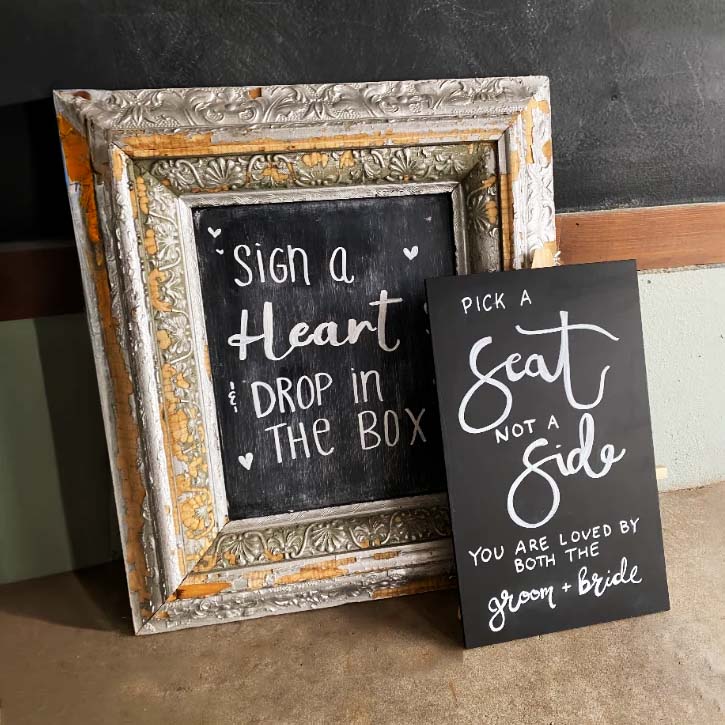 Sign a
Heart
& DROP in
THE BOX
PICK A
Seat
NOT A
Side
YOU ARE LOVED BY
BOTH THE
groom + bride